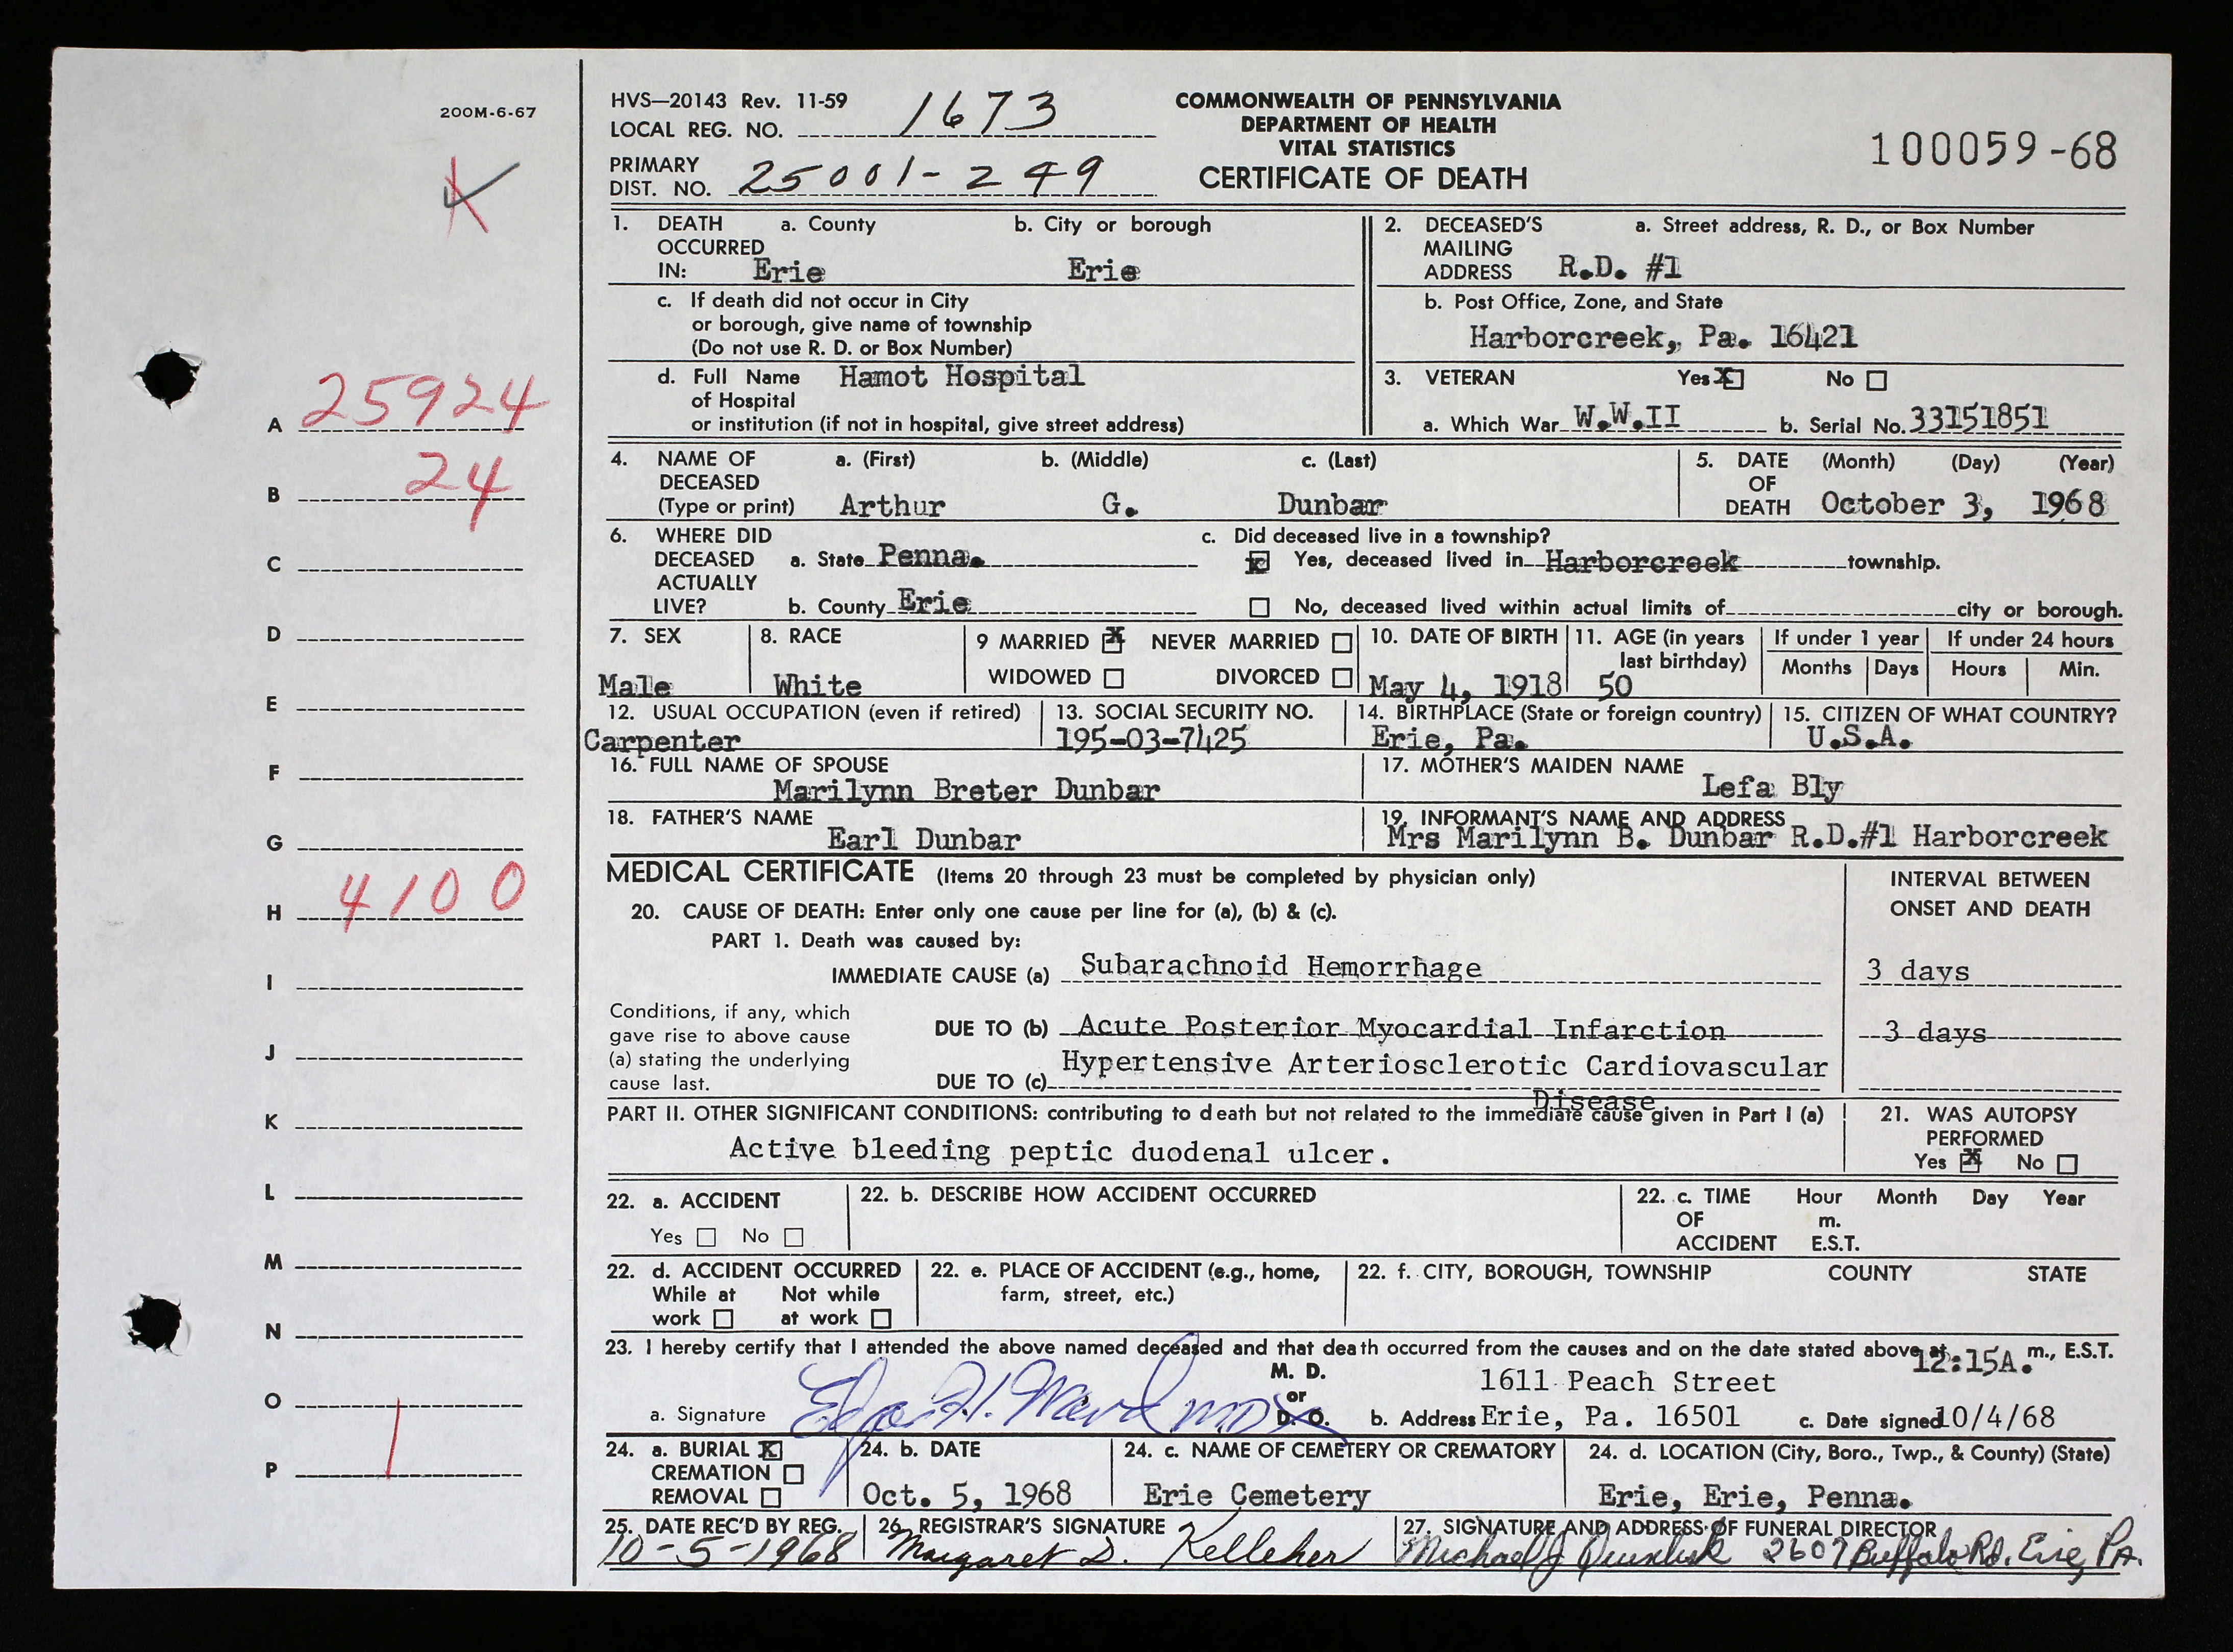 200M-6-67
HVS—20143 Rev. 11-59
LOCAL REG. NO. 1673
PRIMARY
DIST. NO. 25001-249
COMMONWEALTH OF PENNSYLVANIA
DEPARTMENT OF HEALTH
VITAL STATISTICS
CERTIFICATE OF DEATH
100059-68
1. DEATH a. County b. City or borough
OCCURRED
IN: Erie Erie
c. If death did not occur in City
or borough, give name of township
(Do not use R. D. or Box Number)
d. Full Name Hamot Hospital
of Hospital
or institution (if not in hospital, give street address)
2. DECEASED'S a. Street address, R. D., or Box Number
MAILING
ADDRESS R.D. #1
b. Post Office, Zone, and State
Harborcreek, Pa. 16421
3. VETERAN Yes X No
a. Which War W.W.II b. Serial No. 33151851
4. NAME OF a. (First) b. (Middle) c. (Last)
DECEASED
(Type or print) Arthur G. Dunbar
5. DATE (Month) (Day) (Year)
OF
DEATH October 3, 1968
6. WHERE DID
DECEASED a. State Penna.
ACTUALLY
LIVE? b. County Erie
c. Did deceased live in a township?
X Yes, deceased lived in Harborcreek township.
No, deceased lived within actual limits of city or borough.
7. SEX
Male
8. RACE
White
9 MARRIED X NEVER MARRIED
WIDOWED DIVORCED
10. DATE OF BIRTH
May 4, 1918
11. AGE (in years
last birthday)
50
If under 1 year
Months Days
If under 24 hours
Hours Min.
12. USUAL OCCUPATION (even if retired)
Carpenter
13. SOCIAL SECURITY NO.
195-03-7425
14. BIRTHPLACE (State or foreign country)
Erie, Pa.
15. CITIZEN OF WHAT COUNTRY?
U.S.A.
16. FULL NAME OF SPOUSE
Marilynn Breter Dunbar
17. MOTHER'S MAIDEN NAME
Lefa Bly
18. FATHER'S NAME
Earl Dunbar
19. INFORMANT'S NAME AND ADDRESS
Mrs Marilynn B. Dunbar R.D.#1 Harborcreek
MEDICAL CERTIFICATE (Items 20 through 23 must be completed by physician only)
INTERVAL BETWEEN
ONSET AND DEATH
20. CAUSE OF DEATH: Enter only one cause per line for (a), (b) & (c).
PART 1. Death was caused by:
IMMEDIATE CAUSE (a) Subarachnoid Hemorrhage 3 days
Conditions, if any, which
gave rise to above cause
(a) stating the underlying
cause last.
DUE TO (b) Acute Posterior Myocardial Infarction 3 days
DUE TO (c) Hypertensive Arteriosclerotic Cardiovascular
Disease
PART II. OTHER SIGNIFICANT CONDITIONS: contributing to death but not related to the immediate cause given in Part I (a)
Active bleeding peptic duodenal ulcer.
21. WAS AUTOPSY
PERFORMED
Yes X No
22. a. ACCIDENT
Yes No
22. b. DESCRIBE HOW ACCIDENT OCCURRED
22. c. TIME Hour Month Day Year
OF m.
ACCIDENT E.S.T.
22. d. ACCIDENT OCCURRED
While at Not while
work at work
22. e. PLACE OF ACCIDENT (e.g., home,
farm, street, etc.)
22. f. CITY, BOROUGH, TOWNSHIP COUNTY STATE
23. I hereby certify that I attended the above named deceased and that death occurred from the causes and on the date stated above at 12:15A. m., E.S.T.
M. D.
or
D. O.
a. Signature
1611 Peach Street
b. Address Erie, Pa. 16501 c. Date signed 10/4/68
24. a. BURIAL X
CREMATION
REMOVAL
24. b. DATE
Oct. 5, 1968
24. c. NAME OF CEMETERY OR CREMATORY
Erie Cemetery
24. d. LOCATION (City, Boro., Twp., & County) (State)
Erie, Erie, Penna.
25. DATE REC'D BY REG.
10-5-1968
26. REGISTRAR'S SIGNATURE
Margaret D. Kelleher
27. SIGNATURE AND ADDRESS OF FUNERAL DIRECTOR
Michael J 2607 Buffalo Rd. Erie, PA.
A 25924
B 24
C
D
E
F
G
H 4100
I
J
K
L
M
N
O
P 1